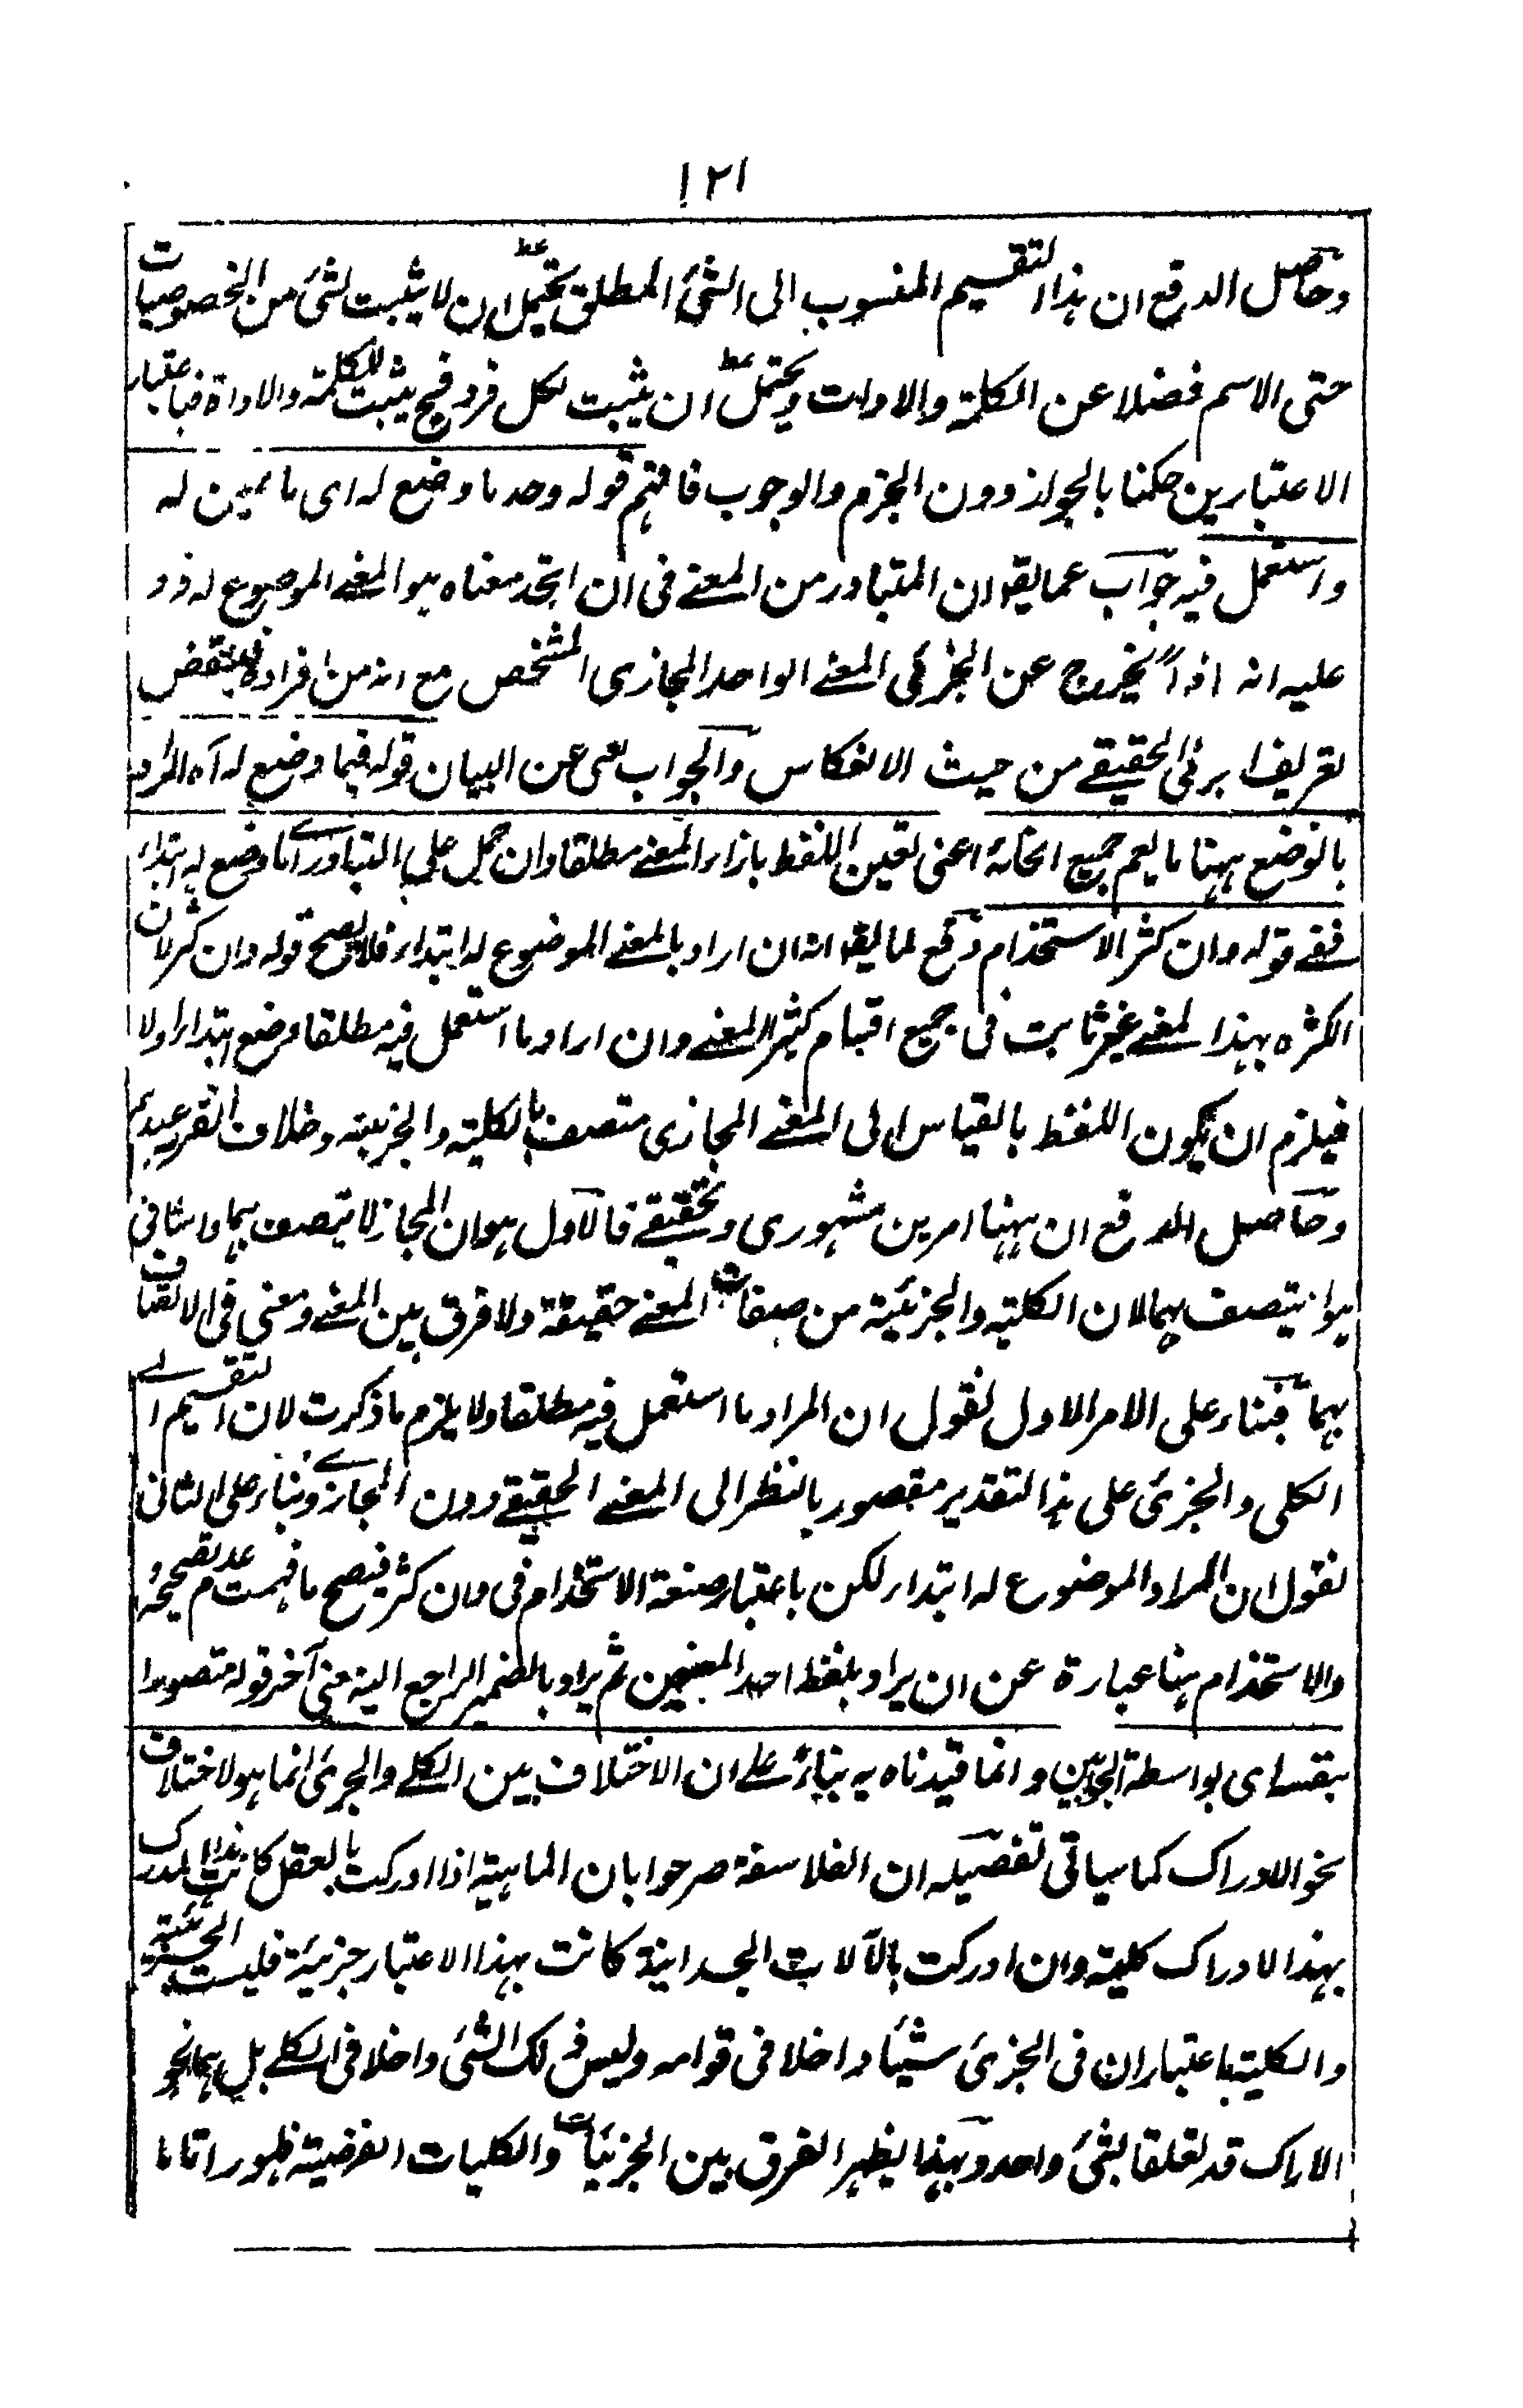 ١٢١
وحاصل الدفع ان هذا التقسيم المنسوب الى الشئ المطلق يحتمل ان لا يثبت لشئ من الخصوصيات
حتى الاسم فضلا عن الكلمة والادات ويحتمل ان يثبت لكل فرد فح يثبت للكلمة والاداة فباعتبار
الاعتبارين حكمنا بالجواز دون الجزم والوجوب فافهم قوله وحد ما وضع له اى ما عين له
واستعمل فيه جواب عما يقو ان المتبادر من المعنے فى ان اتحد معناه هو المعنے الموضوع له فورد
عليه انه اذاً يخرج عن الجزئى المعنے الواحد المجازى المشخص مع انه من افراده فينتقض
تعريف الجزئى الحقيقے من حيث الانعكاس والجواب غنى عن البيان قوله فيما وضع له آه المراد
بالوضع ههنا ما يعم جميع انحائه اعنى تعين اللفظ بازاء المعنے مطلقا وان حمل على المتبادر اے ما وضع له ابتداء
ففے قوله وان كثر الاستخدام دفع لما يقو انه ان اراد بالمعنے الموضوع له ابتداء فلا يصح قوله وان كثر لان
الكثره بهذا المعنے غير ثابت فى جميع اقسام كثير المعنے وان اراد ما استعمل فيه مطلقا وضع ابتداء اولا
فيلزم ان يكون اللفظ بالقياس الى المعنے المجازى متصفا بالكلية والجزئيه وخلاف القر عندهم
وحاصل الدفع ان ههنا امرين مشهورى وتحقيقے فالاول هو ان المجاز لا يتصف بهما والثانى
هو ان يتصف بهما لان الكلية والجزئية من صفات المعنے حقيقة ولا فرق بين المعنے ومعنى فى الاتصاف
بهما فبناء على الامر الاول نقول ان المراد ما استعمل فيه مطلقا ولا يلزم ما ذكرت لان التقسيم الے
الكلى والجزئ على هذا التقدير مقصور بالنظر الى المعنے الحقيقے دون المجازے وبناء على الثانى
نقول ان المراد الموضوع له ابتداء لكن باعتبار صنعة الاستخدام فى وان كثر فيصح ما فهمت عدم تصحيحه
والاستخدام ههنا عبارة عن ان يراد بلفظ احد المعنيين ثم يراد بالضمير الراجع اليه معنى آخر قوله متصورا
بنفسه اى بواسطة الحواس وانما قيدناه به بناءً علے ان الاختلاف بين الكلے والجزئ انما هو لاختلاف
نحو الادراك كما سياتى تفصيله ان الفلاسفة صرحوا بان الماهية اذا ادركت بالعقل كانت هذا المدرك
بهذا الادراك كلية وان ادركت بالآلات الجسدانية كانت بهذا الاعتبار جزئية فليست الجزئية
والكلية باعتبار ان فى الجزئ شيئا داخلا فى قوامه وليس ذلك الشئ داخلا فى الكلے بل هما نحو
الاراك قد تعلقا بشئ واحد وبهذا يظهر الفرق بين الجزئيات والكليات الفرضية ظهورا تاما